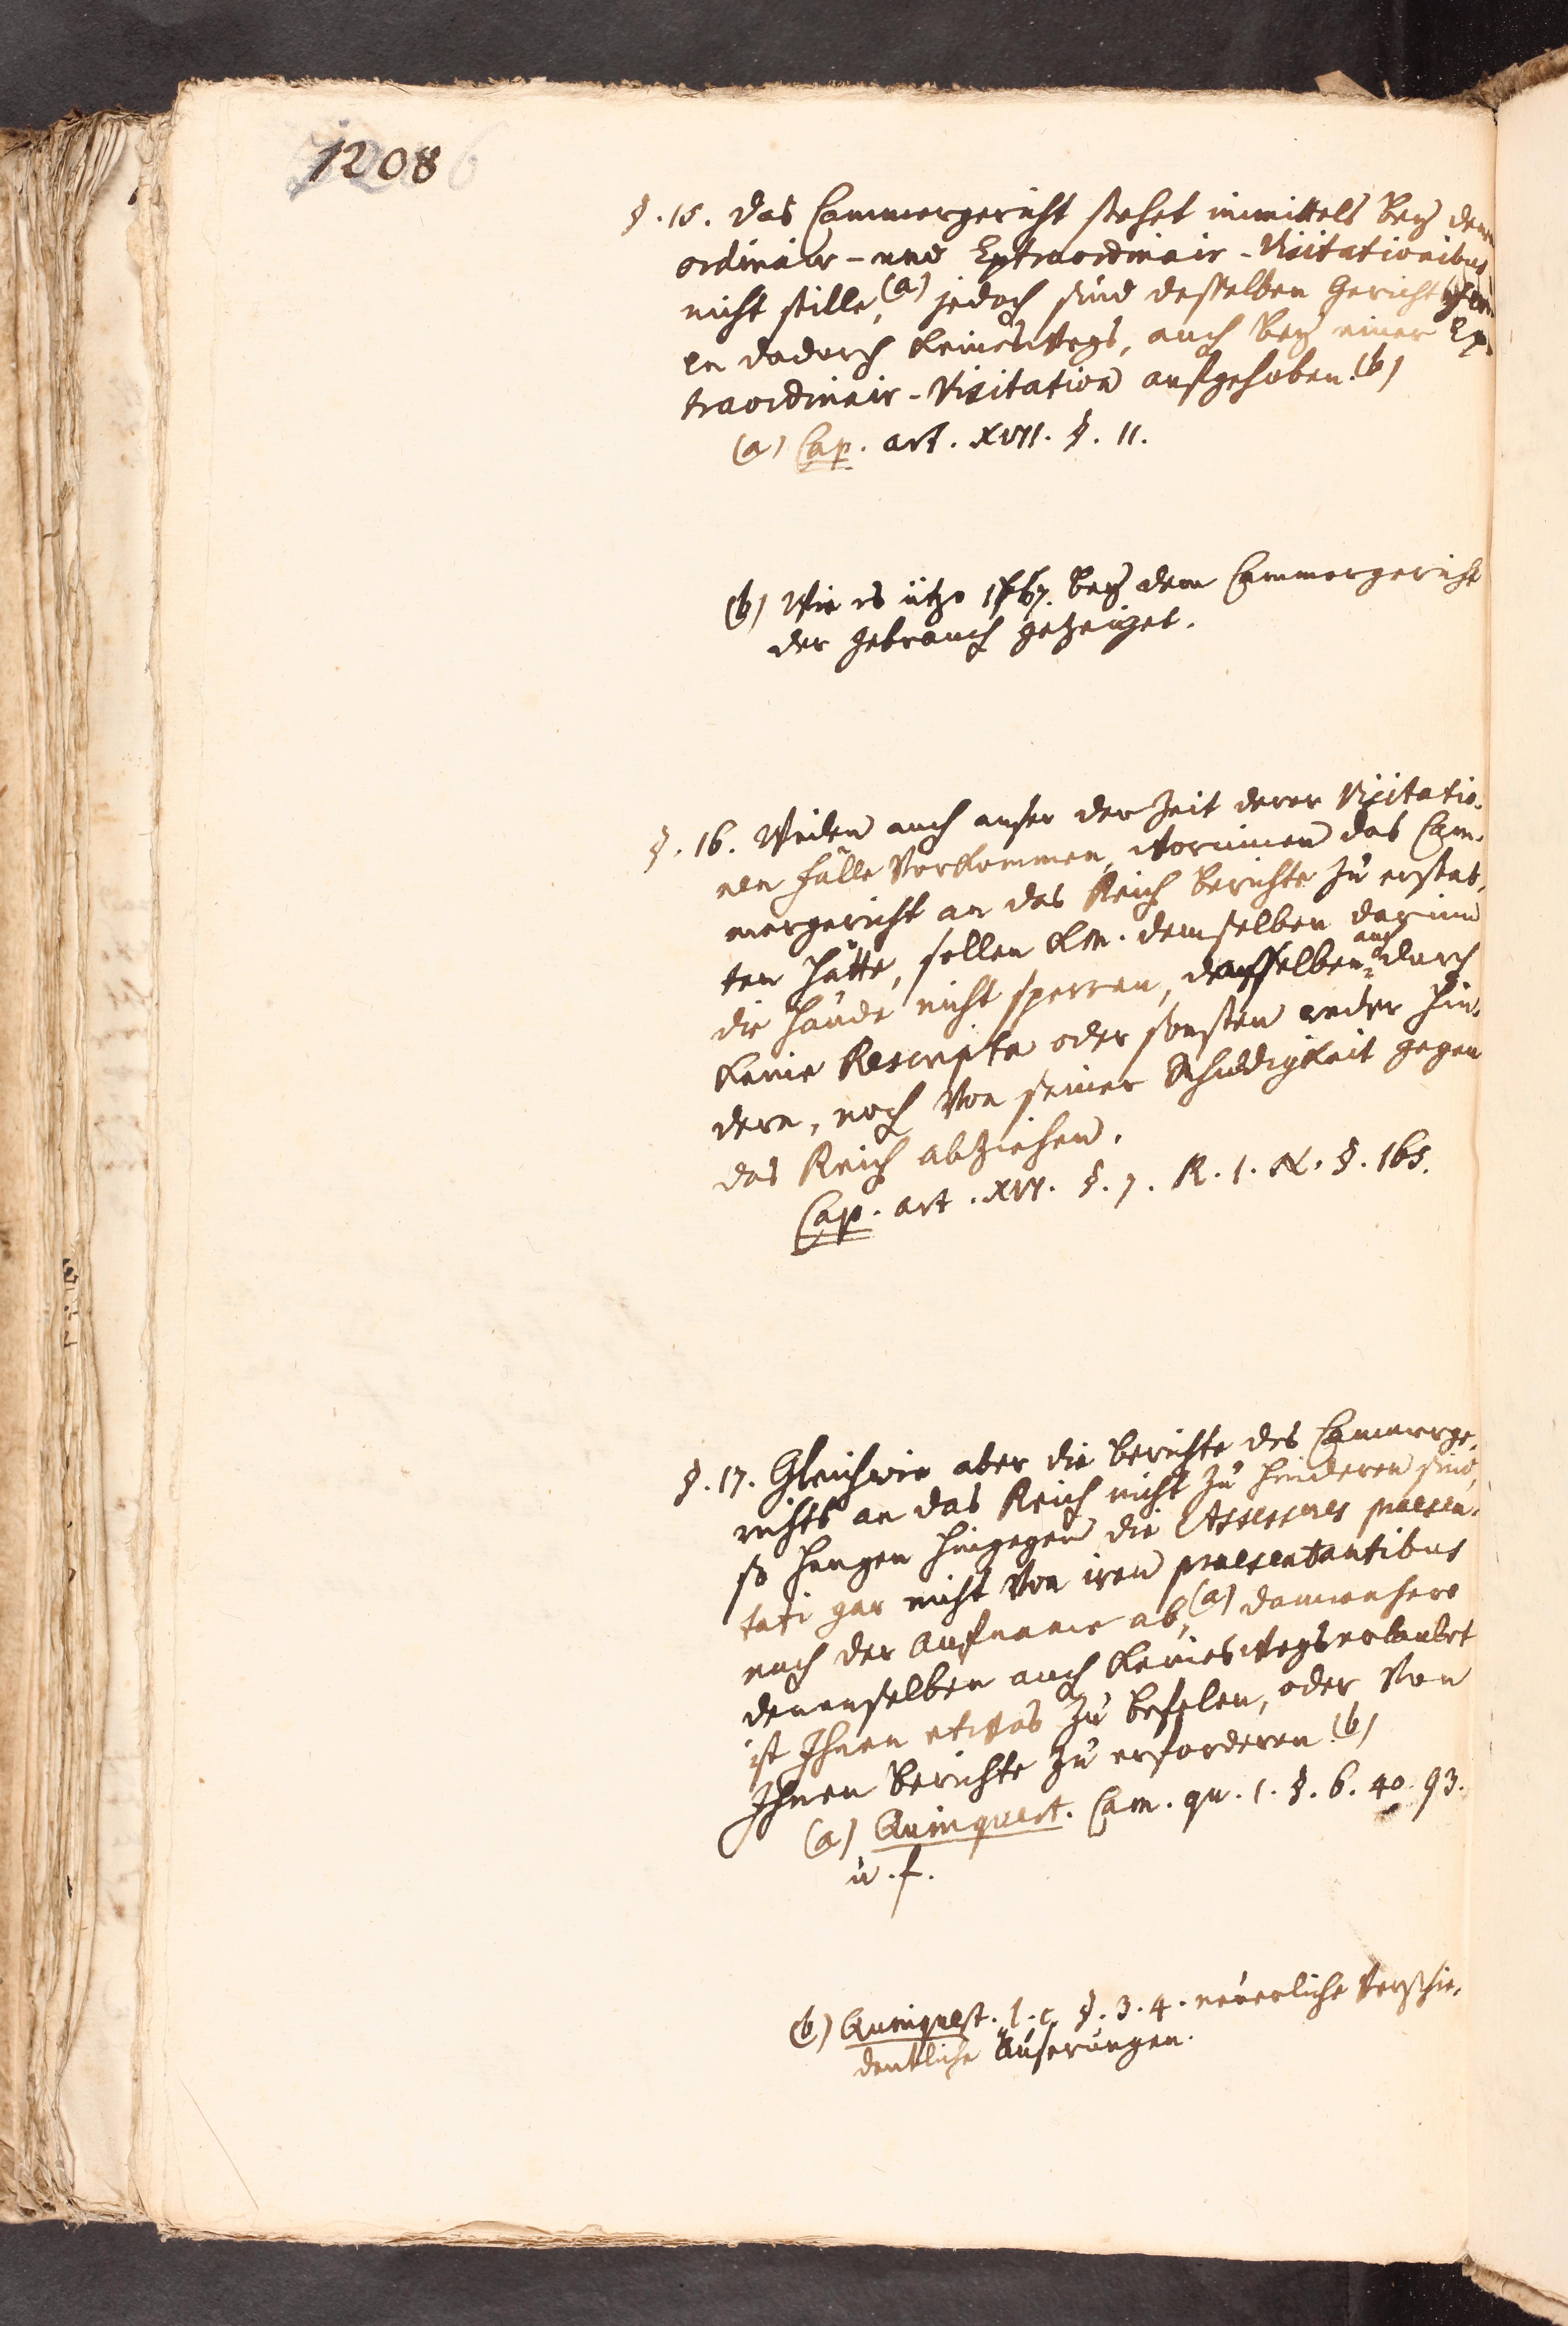 1208
§. 15. Das Cammergericht stehet inmittels bey denen
ordinair- und Extraordinair-Visitationibus
nicht stille, (a) jedoch sind desselben Gericht
en dadurch keineswegs, auch bey einer Ex-
traordinair-Visitation aufgehoben. (b)
(a) Cap. art. XVII. §. 11.
(b) Wie es itzo 1767. bey dem Cammergericht
der gebrauch gezeiget.
§. 16. Weilen auch auser der Zeit derer Visitatio-
nen fälle vorkommen, worinnen das Cam-
mergericht an das Reich berichte zu erstat-
ten hätte, sollen KM. demselben darinn
die hände nicht sperren, dasselben auch durch
keine Rescripta oder sonsten weder hin-
dern, noch von seiner Schuldigkeit gegen
das Reich abziehen.
Cap. art. XVI. §. 7. R. I. N. §. 165.
§. 17. Gleichwie aber die berichte des Cammerge-
richts an das Reich nicht zu hinderen sind,
so hangen hingegen die Assessores praesen-
tati gar nicht von iren praesentantibus
nach der Aufname ab, (a) dannenhero
denenselben auch keineswegs erlaubt
ist Ihnen etwas zu befelen, oder von
Ihnen berichte zu erforderen. (b)
(a) Quinquert. Cam. qu. 1. §. 6. 40. 93.
u. f.
(b) Quinquest. l. c. §. 3. 4. neuerliche verschie-
dentliche äuserungen.